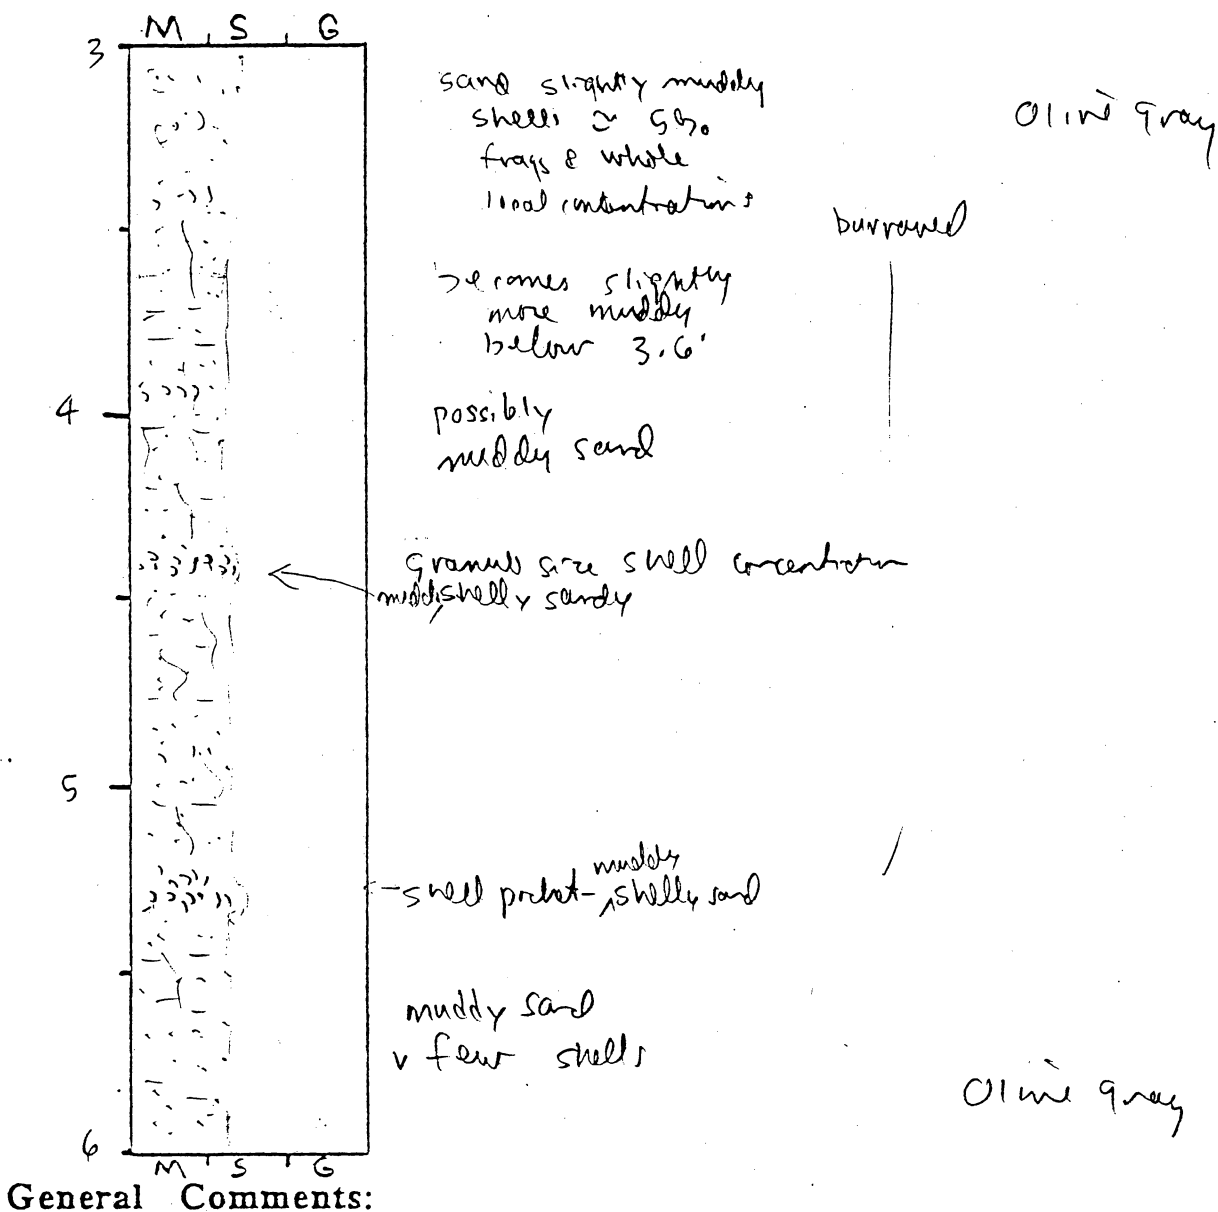 M S G
3
sand slightly muddy
shells ≃ 5%
frags & whole
local concentrations
Olive Gray
burrowed
becomes slightly
more muddy
below 3.6'
4
possibly
muddy sand
Granule size shell concentration
muddy shelly sandy
5
shell pocket - muddy shelly sand
muddy sand
v few shells
Olive Gray
6
M S G
General Comments: